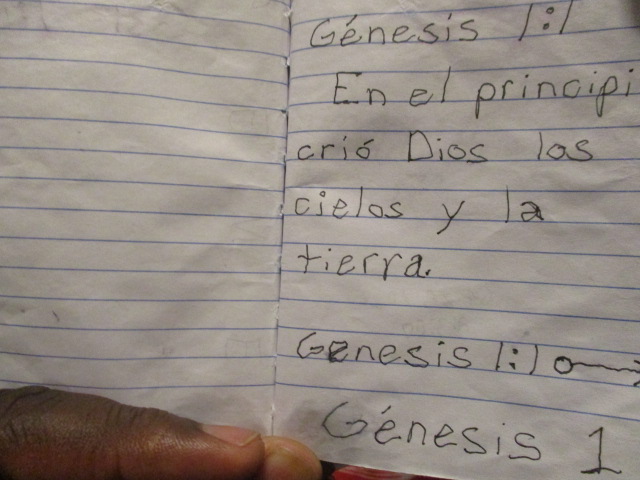 Génesis 1:1
En el principi
crió Dios los
cielos y la
tierra.
Genesis 1:1
Génesis 1